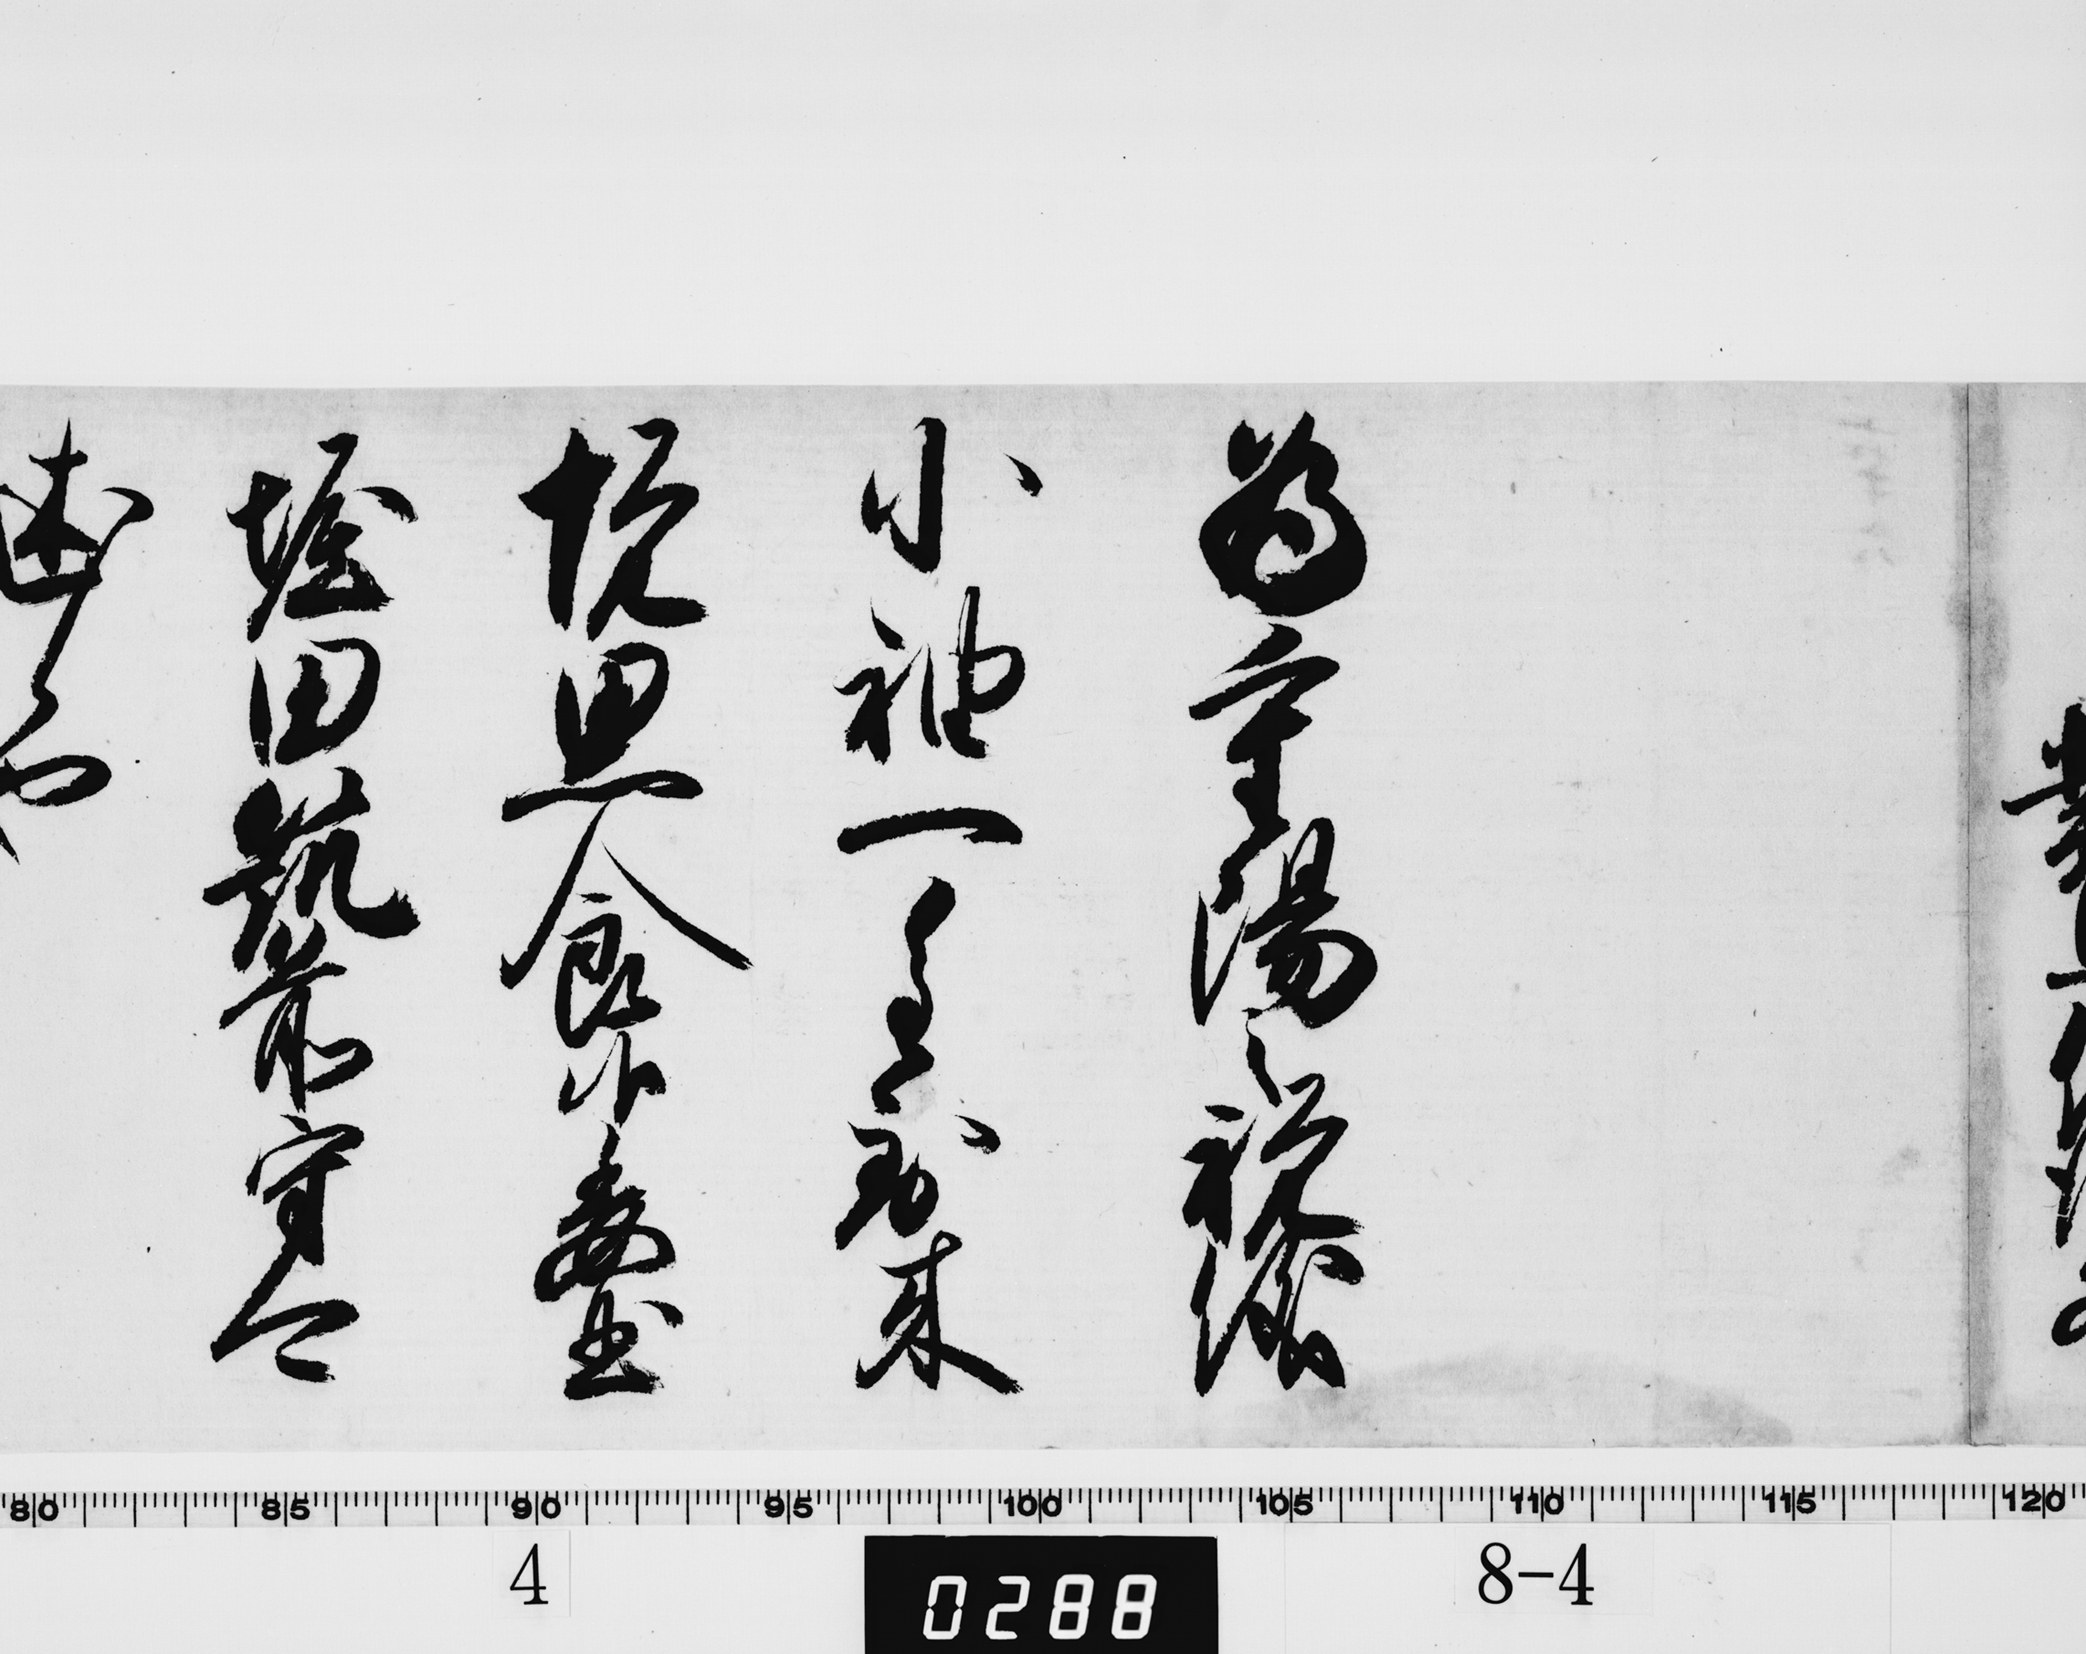 為重陽之祝儀
小袖一重到来
悦思食候委曲
堀田筑前守可
述候也
80 85 90 95 100 105 110 115 120
4 0288 8-4